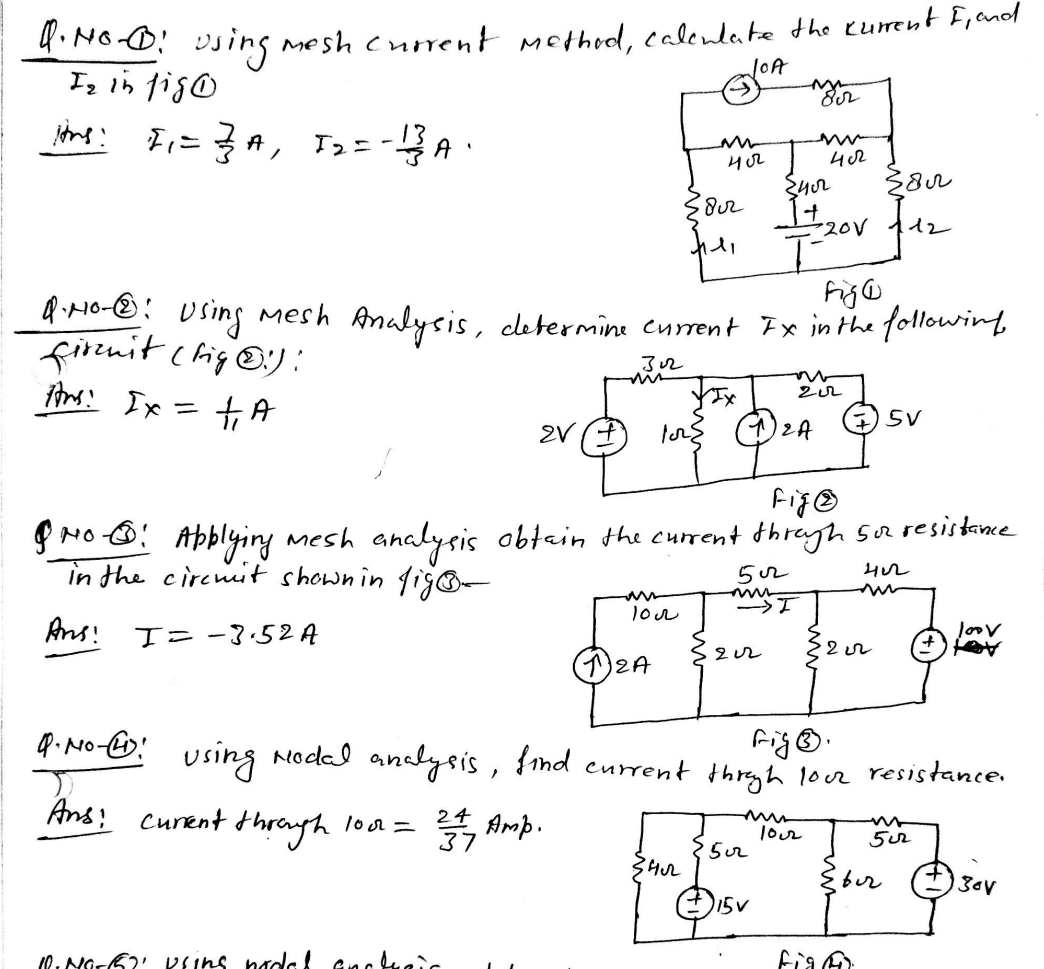 Q.NO-①: Using mesh current method, calculate the current I₁ and
I₂ in fig①
Ans: I₁ = 7/3 A, I₂ = -13/3 A.
10A
8Ω
4Ω
4Ω
4Ω
8Ω
8Ω
+
20V
-
i1
i2
Fig①
Q.NO-②: Using Mesh Analysis, determine current Ix in the following
circuit (fig②:):
Ans: Ix = 1/11 A
3Ω
2Ω
Ix
2V
+
-
1Ω
2A
5V
-
+
Fig②
Q NO-③: Applying mesh analysis obtain the current thrugh 5Ω resistance
in the circuit shown in fig③-
Ans: I = -3.52A
5Ω
4Ω
10Ω
→I
2A
2Ω
2Ω
+
-
100V
Fig③.
Q.NO-④: using Nodal analysis, find current thrgh 10Ω resistance.
Ans: current through 10Ω = 24/37 Amp.
10Ω
5Ω
5Ω
4Ω
6Ω
+
-
30V
+
-
15V
Fig④.
Q.NO-⑤: Using nodal analysis